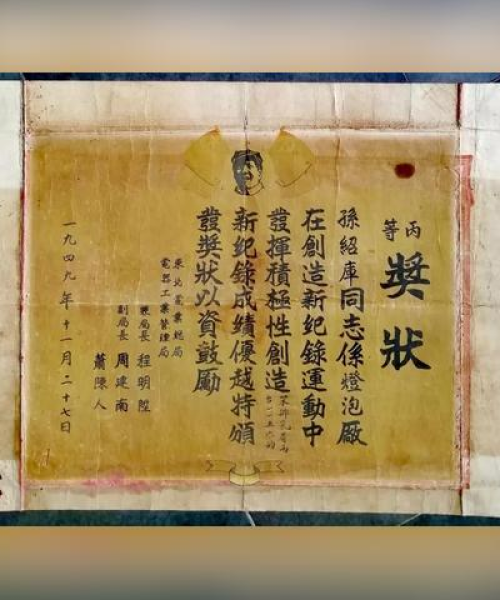 丙等
獎狀
孫紹庫同志係燈泡廠
在創造新紀錄運動中
發揮積極性創造
新紀錄成績優越特頒
發獎狀以資鼓勵
東北電業總局
電器工業管理局
兼局長 程明陞
副局長 周建南
蕭陳人
一九四九年十一月二十七日